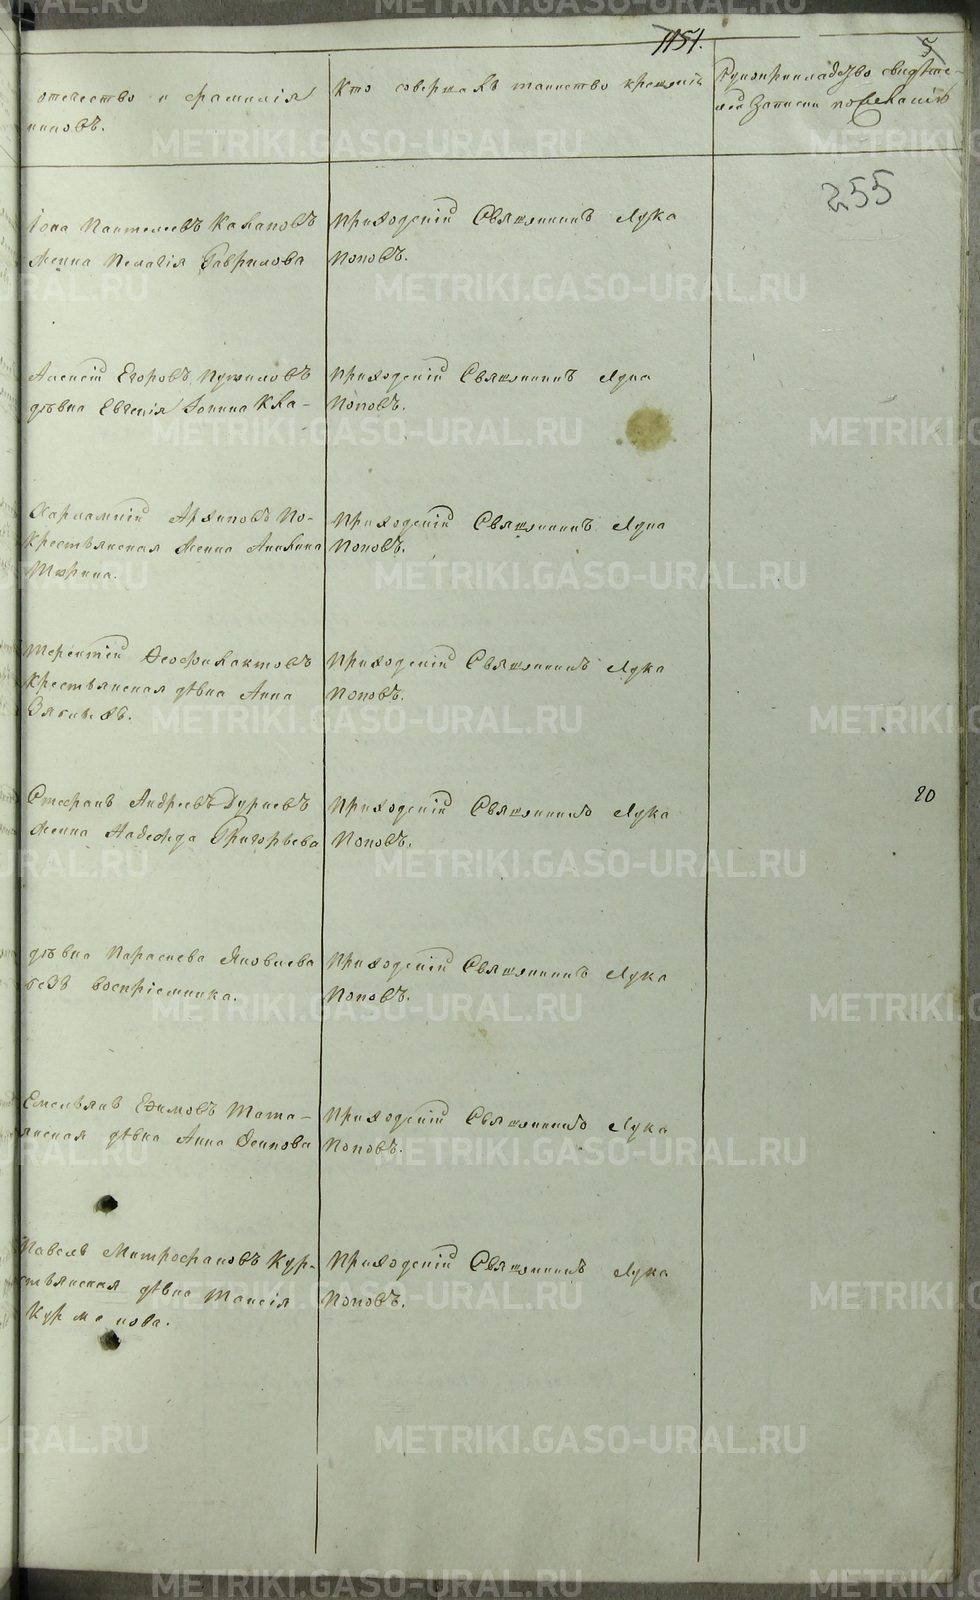 1151.
5
отечество и фамилія
никовъ.
Кто совершалъ таинство крещенія
Рукоприкладство свидѣте-
лей записи по желанію
255
Іона Пантелеевъ Калаповъ
жена Пелагія Гаврилова
Приходскій Священникъ Лука
Поповъ.
Алексій Егоровъ
дѣвка Евгенія Іонина Кла-
Приходскій Священникъ Лука
Поповъ.
Харлампій Архиповъ По-
Крестьянская жена Акилина
Тюрина.
Приходскій Священникъ Лука
Поповъ.
Терентій Феофилактовъ
крестьянская дѣвка Анна
Приходскій Священникъ Лука
Поповъ.
Стефанъ Андреевъ Дурневъ
жена Надежда Григорьева
Приходскій Священникъ Лука
Поповъ.
20
дѣвка Параскева Яковлева
безъ воспріемника.
Приходскій Священникъ Лука
Поповъ.
Емельянъ Ефимовъ Тата-
янская дѣвка Анна Осипова
Приходскій Священникъ Лука
Поповъ.
Павелъ Митрофановъ Кур-
стьянская дѣвка Таисія
Курманова.
Приходскій Священникъ Лука
Поповъ.
METRIKI.GASO-URAL.RU